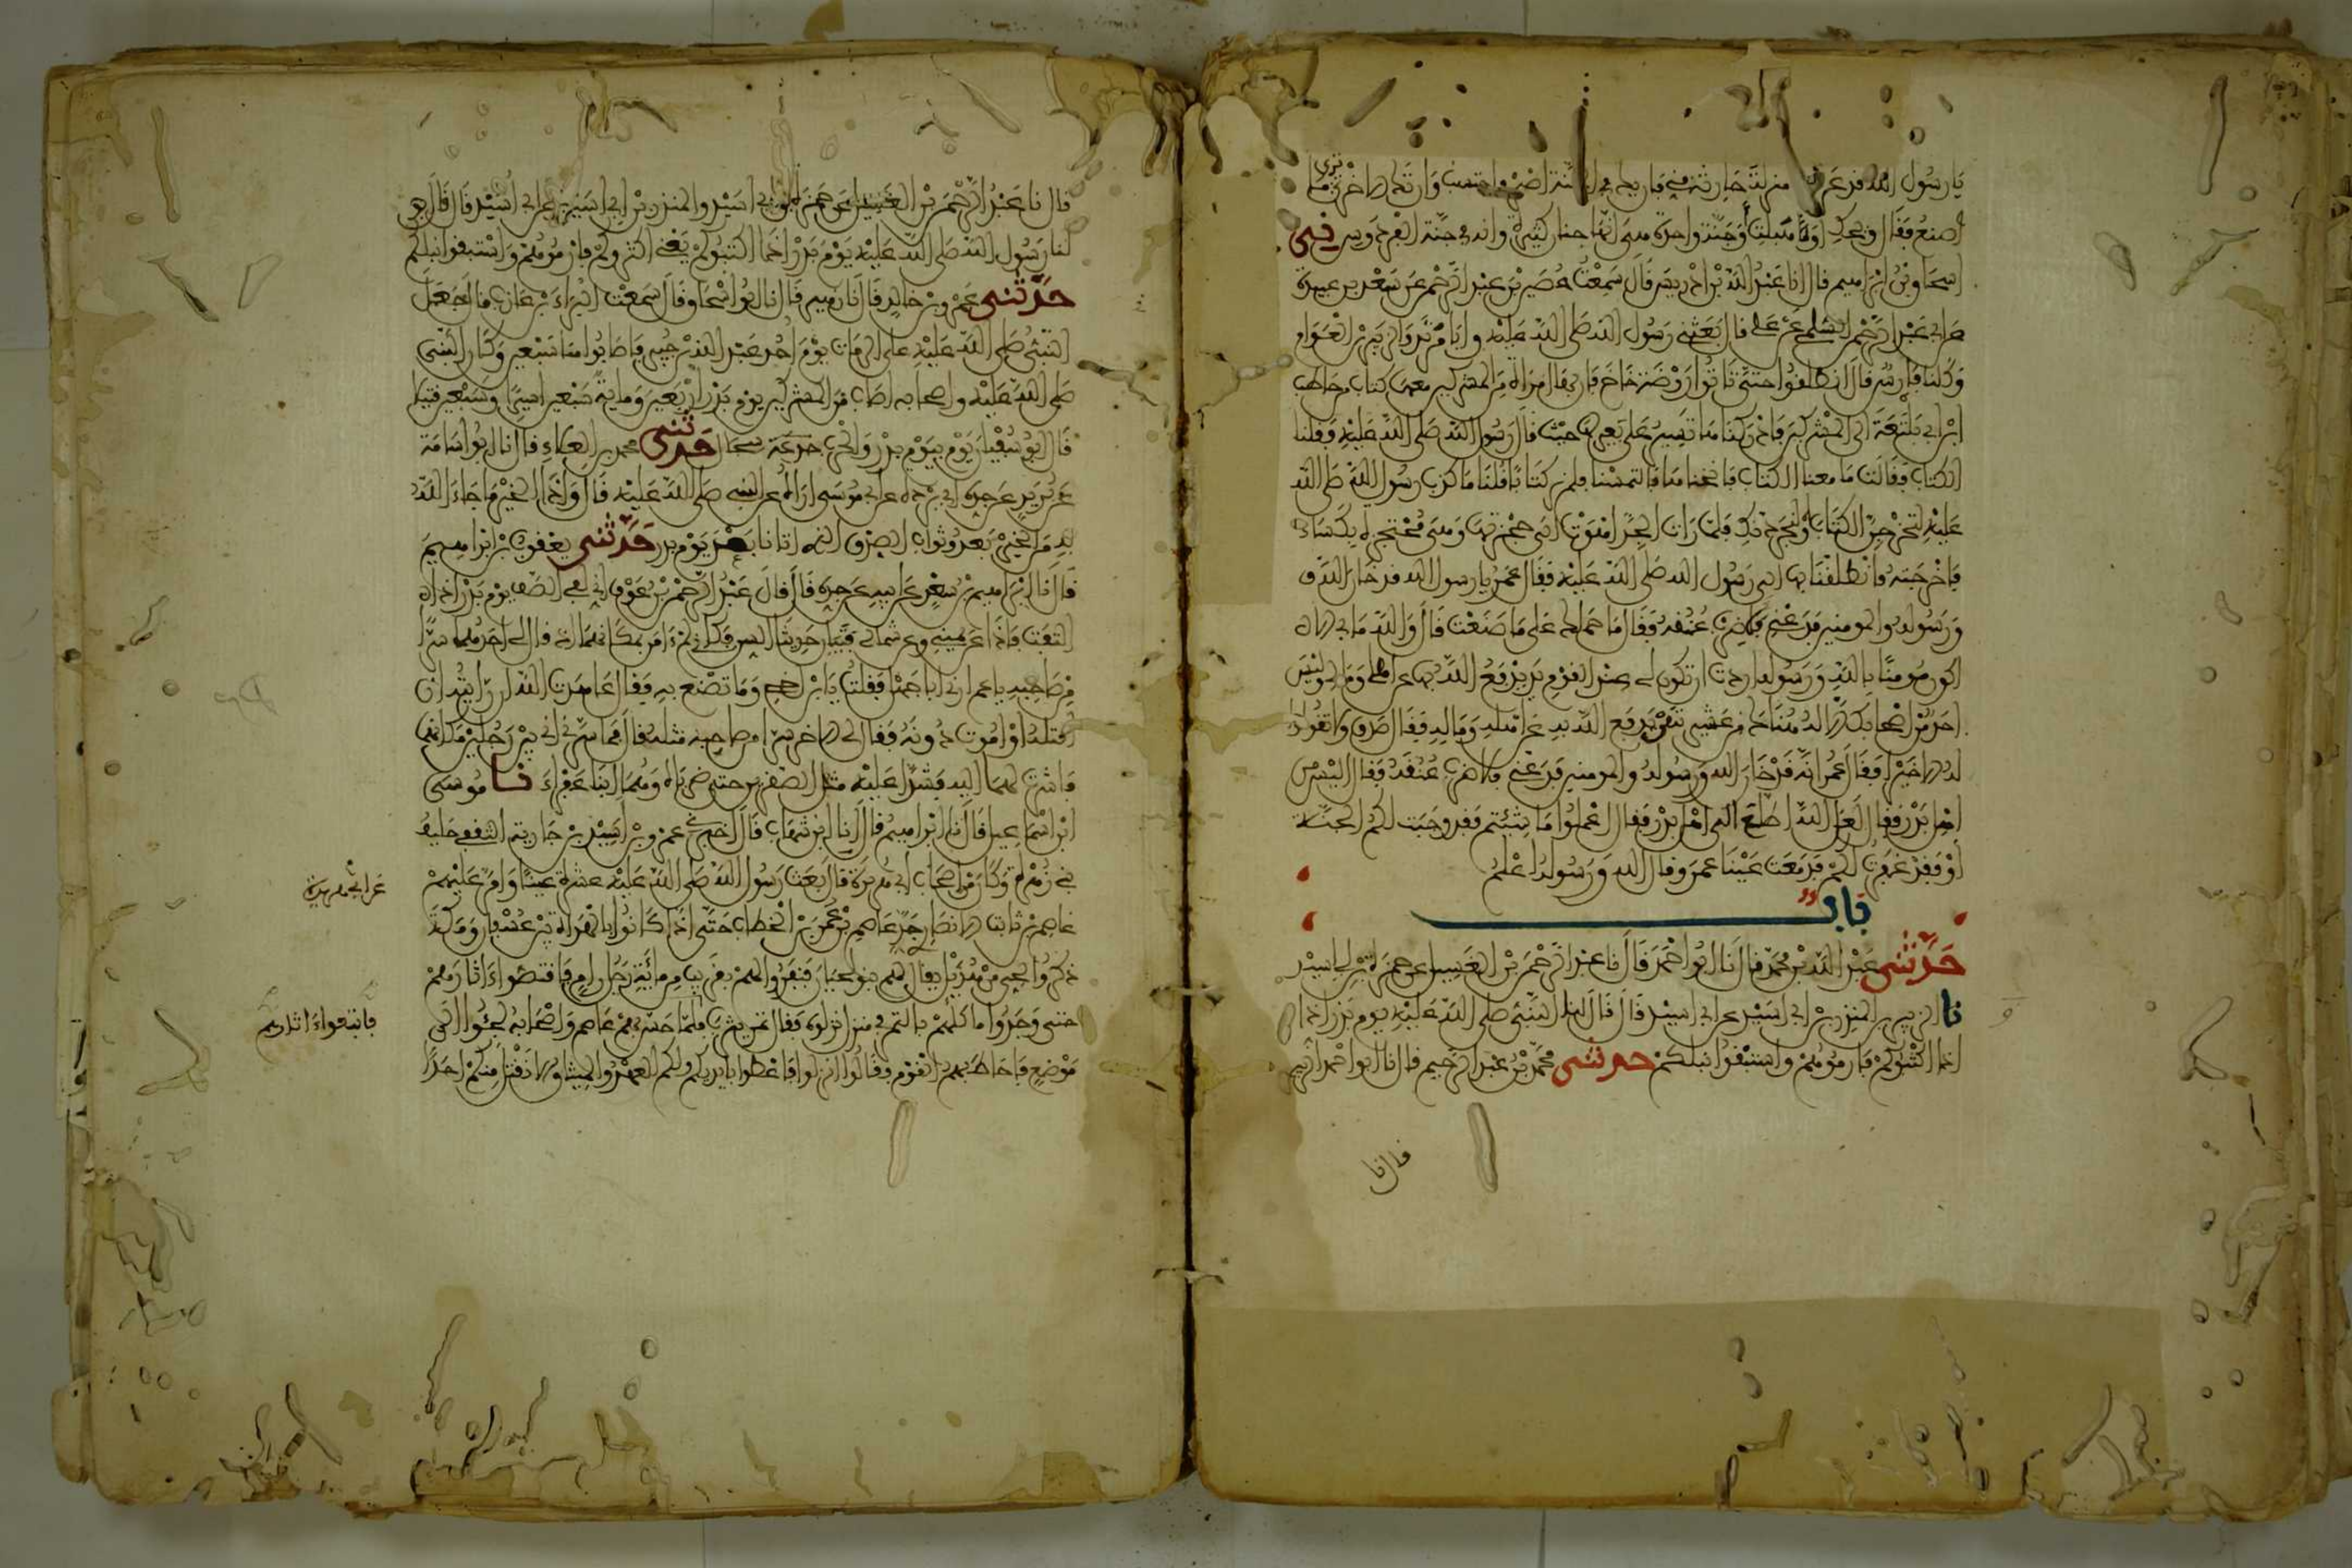 يا رسول الله قد عرفت منزلة حارثة مني فإن يكن في الجنة أصبر وأحتسب وإن تك الأخرى ترى ما
أصنع فقال ويحك أوهبلت أوجنة واحدة هي إنها جنان كثيرة وإنه في جنة الفردوس حدثني
إسحاق بن إبراهيم قال أنا عبد الله بن إدريس قال سمعت حصين بن عبد الرحمن عن سعد بن عبيدة
عن أبي عبد الرحمن السلمي عن علي قال بعثني رسول الله صلى الله عليه وأبا مرثد والزبير بن العوام
وكلنا فارس قال انطلقوا حتى تاتوا روضة خاخ فإن بها امرأة من المشركين معها كتاب من حاطب
ابن أبي بلتعة إلى المشركين فأدركناها تسير على بعير لها حيث قال رسول الله صلى الله عليه وقلنا
الكتاب فقالت ما معنا الكتاب فأنخناها فالتمسنا فلم نر كتابا فقلنا ما كذب رسول الله صلى الله
عليه لتخرجن الكتاب أو لنجردنك فلما رأت الجد أهوت إلى حجزتها وهي محتجزة بكساء
فأخرجته فانطلقنا بها إلى رسول الله صلى الله عليه فقال عمر يا رسول الله قد خان الله
ورسوله والمومنين فدعني فلأضرب عنقه فقال ما حملك على ما صنعت قال والله ما بي ألا
أكون مومنا بالله ورسوله أردت أن تكون لي عند القوم يد يدفع الله بها عن أهلي ومالي وليس
أحد من أصحابك إلا له هناك من عشيرته من يدفع الله به عن أهله وماله فقال صدق ولا تقولوا
له إلا خيرا فقال عمر إنه قد خان الله ورسوله والمومنين فدعني فلأضرب عنقه فقال أليس من
أهل بدر فقال لعل الله اطلع إلى أهل بدر فقال اعملوا ما شئتم فقد وجبت لكم الجنة
أو فقد غفرت لكم فدمعت عينا عمر وقال الله ورسوله أعلم
باب
حدثني عبد الله بن محمد قال نا أبو أحمد قال نا عبد الرحمن بن الغسيل عن حمزة بن أبي أسيد
نا الزبير بن المنذر بن أبي أسيد عن أبي أسيد قال قال لنا النبي صلى الله عليه يوم بدر إذا
إذا أكثبوكم فارموهم واستبقوا نبلكم حدثني محمد بن عبد الرحيم قال نا أبو أحمد الزبيري
قال نا
قال نا عبد الرحمن بن الغسيل عن حمزة بن أبي أسيد والمنذر بن أبي أسيد عن أبي أسيد قال قال
لنا رسول الله صلى الله عليه يوم بدر إذا أكثبوكم يعني أكثروكم فارموهم واستبقوا نبلكم
حدثني عمرو بن خالد قال نا زهير قال نا أبو إسحاق قال سمعت البراء بن عازب قال جعل
النبي صلى الله عليه على الرماة يوم أحد عبد الله بن جبير فأصابوا منا سبعين وكان النبي
صلى الله عليه وأصحابه أصاب من المشركين يوم بدر أربعين ومائة سبعين أسيرا وسبعين قتيلا
قال أبو سفيان يوم بيوم بدر والحرب سجال حدثني محمد بن العلاء قال نا أبو أسامة
عن بريد عن جده أبي بردة عن أبي موسى أراه عن النبي صلى الله عليه قال وإذا الخير ما جاء الله
به من الخير بعد وثواب الصدق الذي آتانا بعد يوم بدر حدثني يعقوب بن إبراهيم
قال نا إبراهيم بن سعد عن أبيه عن جده قال قال عبد الرحمن بن عوف إني لفي الصف يوم بدر إذ
التفت فإذا عن يميني وعن شمالي فتيان حديثا السن فكأني لم آمن بمكانهما إذ قال لي أحدهما سرا
من صاحبه يا عم أرني أبا جهل فقلت يا ابن أخي وما تصنع به فقال عاهدت الله إن رأيته أن
أقتله أو أموت دونه فقال لي الآخر سرا من صاحبه مثله قال فما سرني أني بين رجلين مكانهما
فأشرت لهما إليه فشدا عليه مثل الصقرين حتى ضرباه وهما ابنا عفراء نا موسى
ابن إسماعيل قال نا إبراهيم قال نا ابن شهاب قال أخبرني عمرو بن أسيد بن جارية الثقفي حليف
بني زهرة وكان من أصحاب أبي هريرة قال بعث رسول الله صلى الله عليه عشرة عينا وأمر عليهم
عن أبي هريرة
عاصم بن ثابت الأنصاري جد عاصم بن عمر بن الخطاب حتى إذا كانوا بالهدأة بين عسفان ومكة
ذكروا لحي من هذيل يقال لهم بنو لحيان فنفروا لهم بقريب من مائة رجل رام فاقتصوا آثارهم
حتى وجدوا مأكلهم التمر في منزل نزلوه فقال تمر يثرب فلما حس بهم عاصم وأصحابه لجئوا إلى
فاتبعوا آثارهم
موضع فأحاط بهم القوم وقالوا انزلوا فأعطوا بأيديكم ولكم العهد والميثاق ألا نقتل منكم أحدا